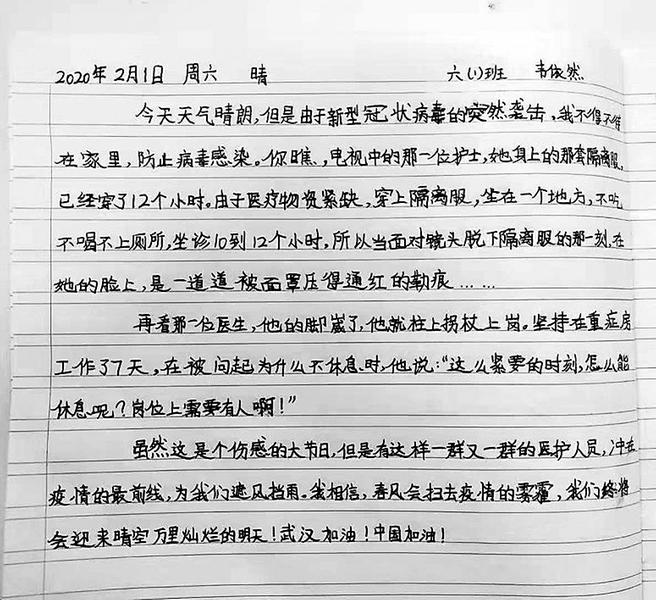 2020年2月1日 周六 晴 六(1)班 韦依然
今天天气晴朗,但是由于新型冠状病毒的突然袭击,我不得不待
在家里,防止病毒感染。你瞧,电视中的那一位护士,她身上的那套隔离服,
已经穿了12个小时。由于医疗物资紧缺,穿上隔离服,坐在一个地方,不吃
不喝不上厕所,坐诊10到12个小时,所以当面对镜头脱下隔离服的那一刻,在
她的脸上,是一道道被面罩压得通红的勒痕……
再看那一位医生,他的脚崴了,他就拄上拐杖上岗。坚持在重症房
工作了7天,在被问起为什么不休息时,他说:“这么紧要的时刻,怎么能
休息呢?岗位上需要有人啊!”
虽然这是个伤感的大节日,但是有这样一群又一群的医护人员,冲在
疫情的最前线,为我们遮风挡雨。我相信,春风会扫去疫情的雾霾,我们终将
会迎来晴空万里灿烂的明天!武汉加油!中国加油!